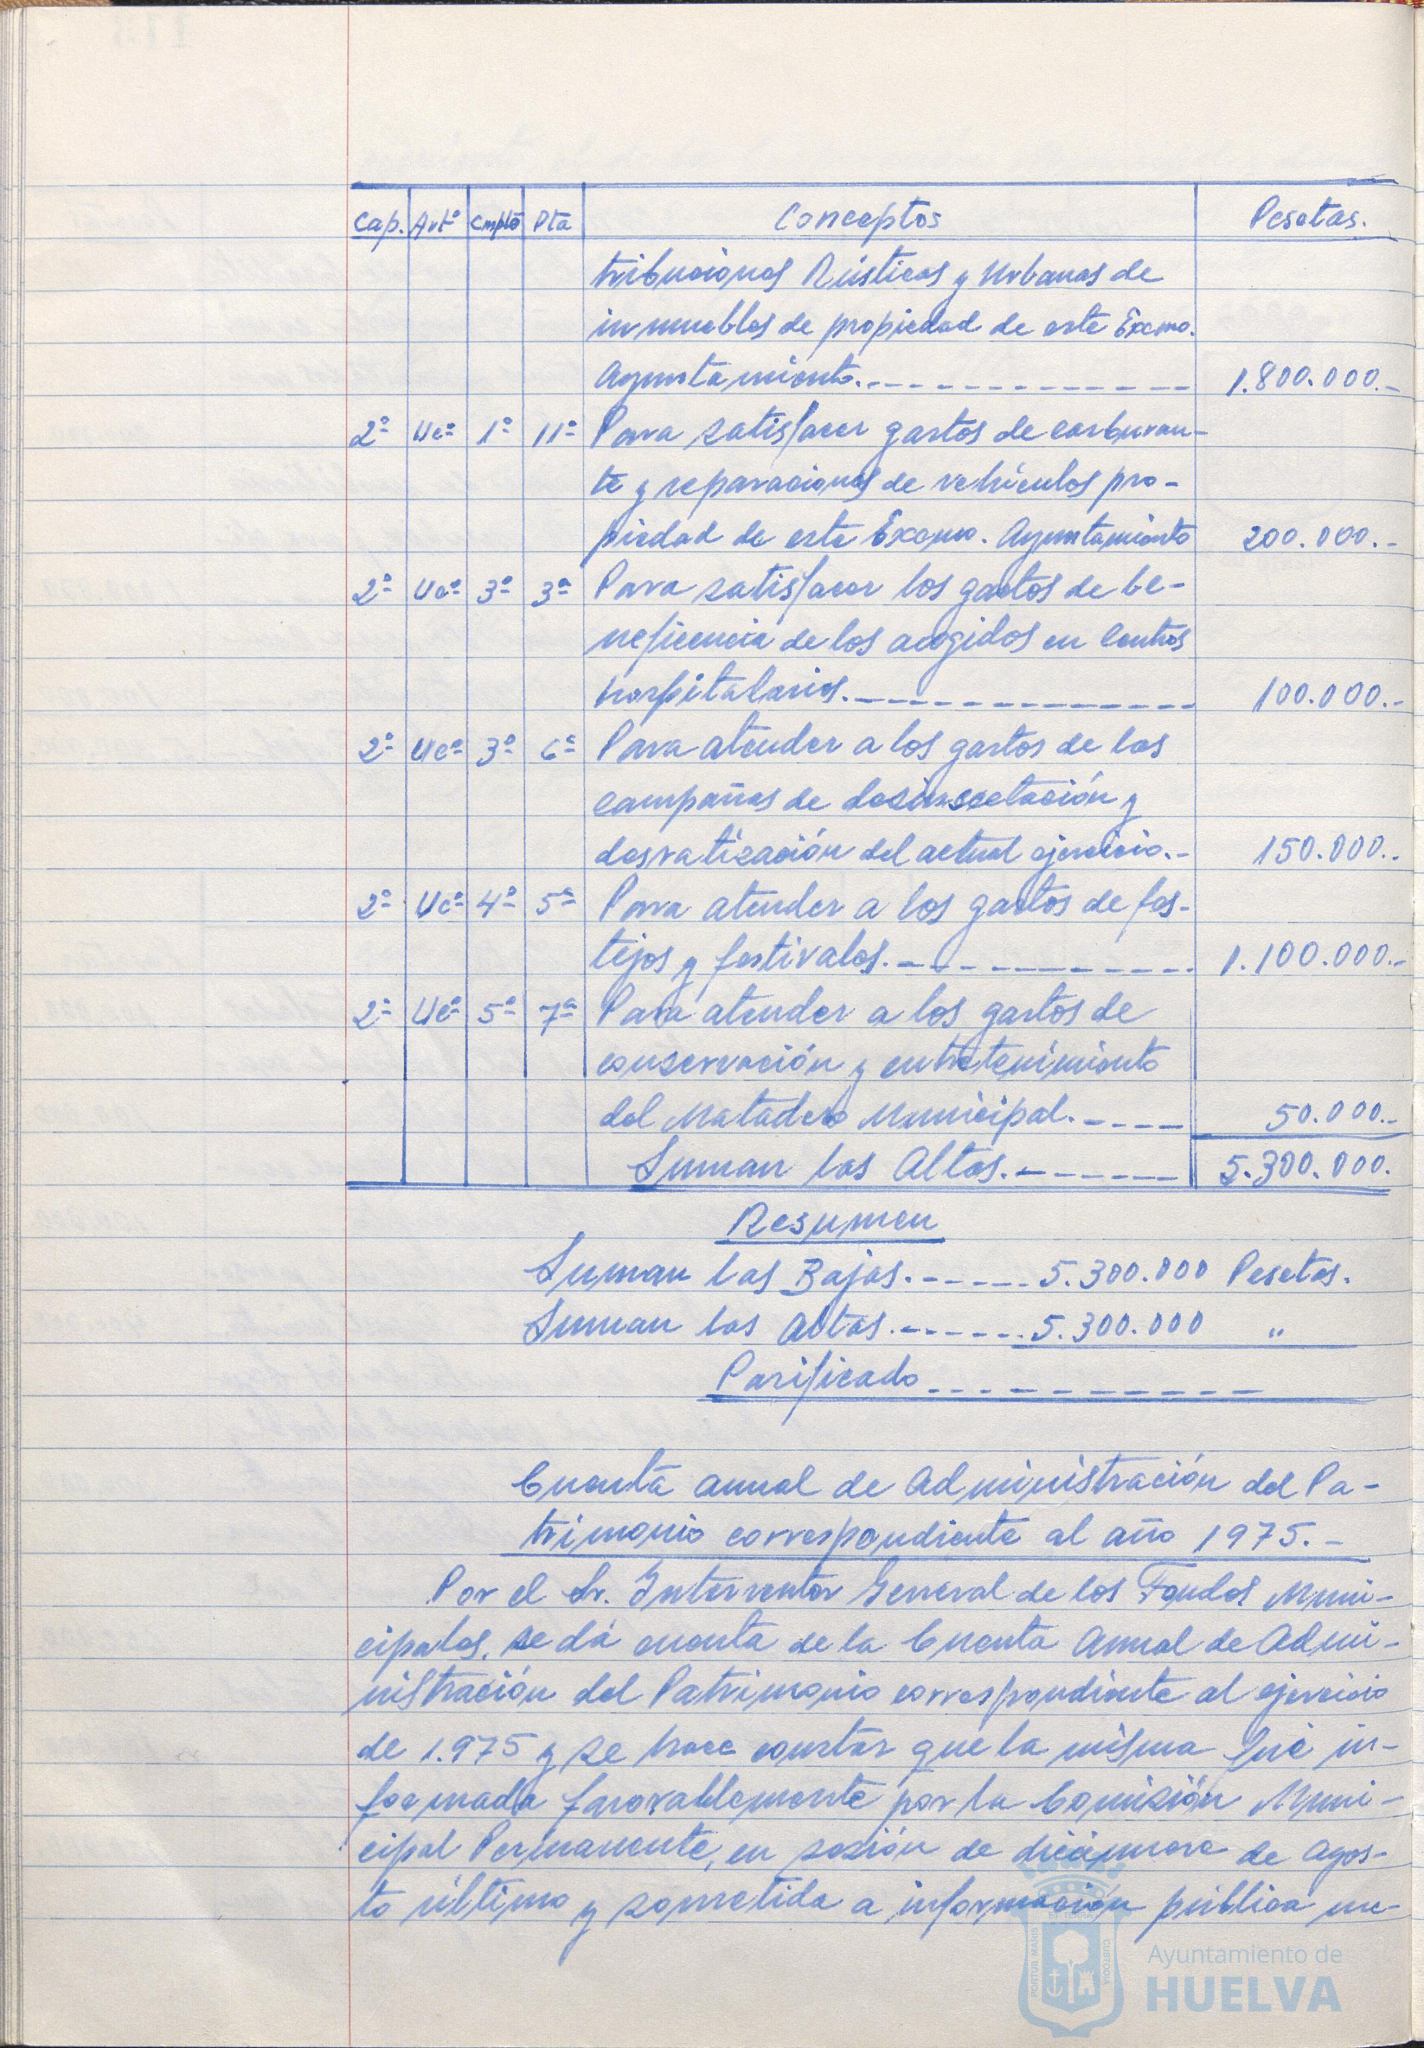 Cap. Artº Cmptº Pta Conceptos Pesetas.
tribuciones Rústicas y Urbanas de
inmuebles de propiedad de este Excmo.
Ayuntamiento.- 1.800.000.-
2º Ucº 1º 11ª Para satisfacer gastos de carburan-
te y reparaciones de vehículos pro-
piedad de este Excmo. Ayuntamiento 200.000.-
2º Ucº 3º 3ª Para satisfacer los gastos de be-
neficencia de los acogidos en Centros
hospitalarios.- 100.000.-
2º Ucº 3º 6ª Para atender a los gastos de las
campañas de desinsectación y
desratización del actual ejercicio.- 150.000.-
2º Ucº 4º 5ª Para atender a los gastos de fes-
tejos y festivales.- 1.100.000.-
2º Ucº 5º 7ª Para atender a los gastos de
conservación y entretenimiento
del Matadero Municipal.- 50.000.-
Suman las Altas.- 5.300.000.
Resumen
Suman las Bajas.- 5.300.000 Pesetas.
Suman las Altas.- 5.300.000 "
Parificado
Cuenta anual de Administración del Pa-
trimonio correspondiente al año 1975.-
Por el Sr. Interventor General de los Fondos Muni-
cipales, se dá cuenta de la Cuenta Anual de Admi-
nistración del Patrimonio correspondiente al ejercicio
de 1.975 y se hace constar que la misma fué in-
formada favorablemente por la Comisión Muni-
cipal Permanente, en sesión de diecinueve de Agos-
to último y sometida a información pública me-
Ayuntamiento de
HUELVA
PORTUS MARIS CUSTODIA